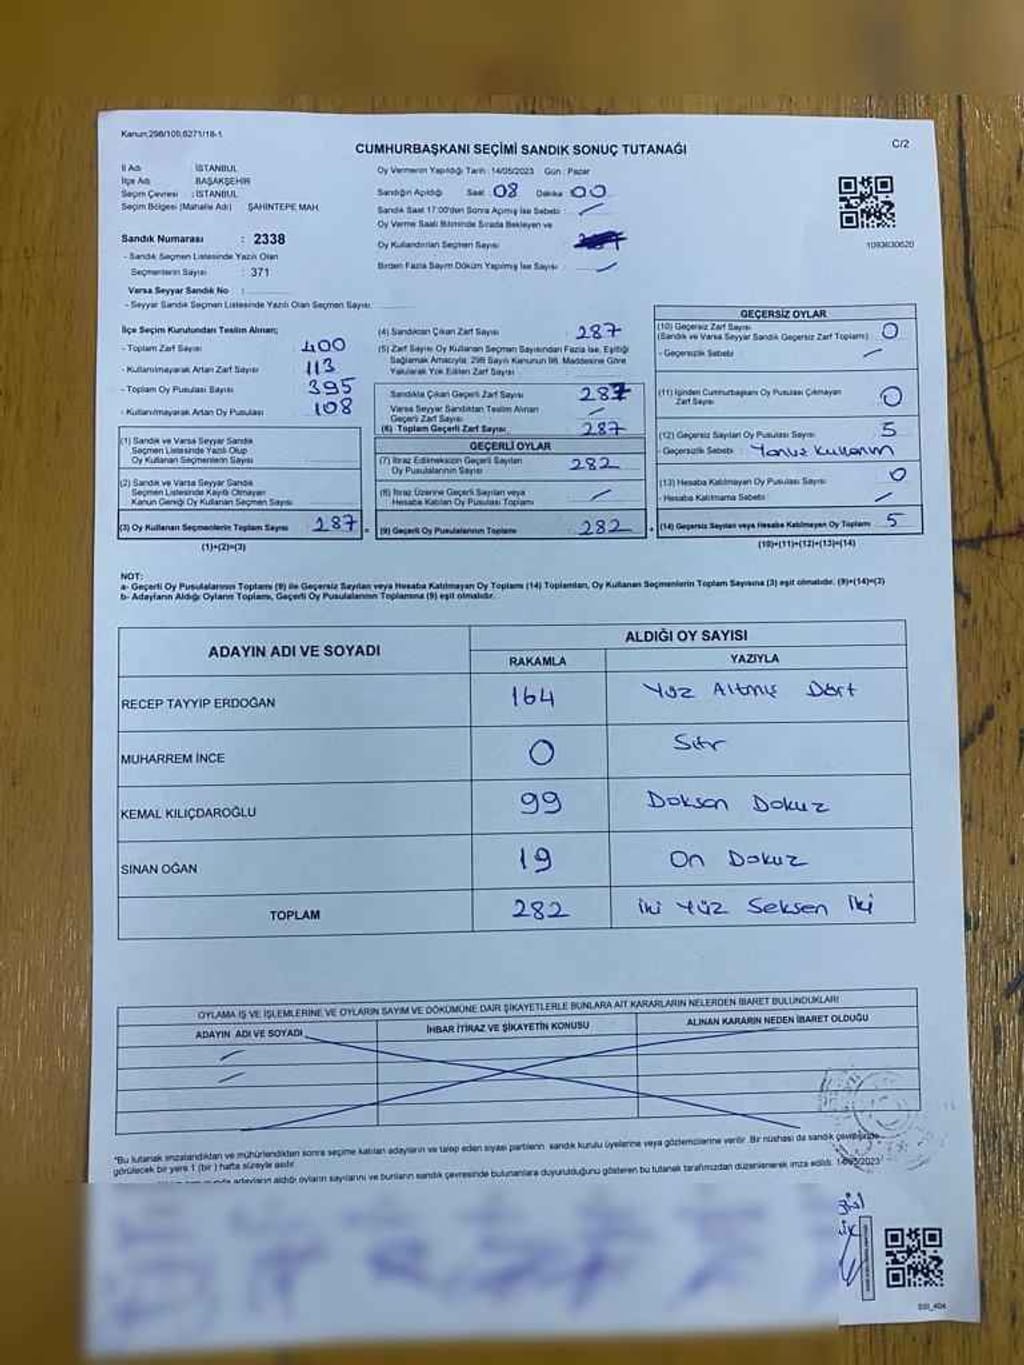 Kanun;298/100,6271/18-1
CUMHURBAŞKANI SEÇİMİ SANDIK SONUÇ TUTANAĞI
C/2
İl Adı : İSTANBUL
İlçe Adı : BAŞAKŞEHİR
Seçim Çevresi : İSTANBUL
Seçim Bölgesi (Mahalle Adı) ŞAHİNTEPE MAH.
Sandık Numarası : 2338
- Sandık Seçmen Listesinde Yazılı Olan
Seçmenlerin Sayısı : 371
Varsa Seyyar Sandık No :
- Seyyar Sandık Seçmen Listesinde Yazılı Olan Seçmen Sayısı:
Oy Vermenin Yapıldığı Tarih : 14/05/2023 Gün : Pazar
Sandığın Açıldığı Saat: 08 Dakika: 00
Sandık Saat 17:00'den Sonra Açılmış İse Sebebi : -
Oy Verme Saati Bitiminde Sırada Bekleyen ve
Oy Kullandırılan Seçmen Sayısı
Birden Fazla Sayım Döküm Yapılmış İse Sayısı -
1093630620
İlçe Seçim Kurulundan Teslim Alınan;
- Toplam Zarf Sayısı : 400
- Kullanılmayarak Artan Zarf Sayısı : 113
- Toplam Oy Pusulası Sayısı : 395
- Kullanılmayarak Artan Oy Pusulası : 108
(1) Sandık ve Varsa Seyyar Sandık
Seçmen Listesinde Yazılı Olup
Oy Kullanan Seçmenlerin Sayısı
(2) Sandık ve Varsa Seyyar Sandık
Seçmen Listesinde Kayıtlı Olmayan
Kanun Gereği Oy Kullanan Seçmen Sayısı
(3) Oy Kullanan Seçmenlerin Toplam Sayısı 287 =
(1)+(2)=(3)
(4) Sandıktan Çıkan Zarf Sayısı : 287
(5) Zarf Sayısı Oy Kullanan Seçmen Sayısından Fazla İse, Eşitliği
Sağlamak Amacıyla, 298 Sayılı Kanunun 98. Maddesine Göre
Yakılarak Yok Edilen Zarf Sayısı :
Sandıkta Çıkan Geçerli Zarf Sayısı 287
Varsa Seyyar Sandıktan Teslim Alınan
Geçerli Zarf Sayısı -
(6) Toplam Geçerli Zarf Sayısı 287
GEÇERLİ OYLAR
(7) İtiraz Edilmeksizin Geçerli Sayılan
Oy Pusulalarının Sayısı 282
(8) İtiraz Üzerine Geçerli Sayılan veya
Hesaba Katılan Oy Pusulası Toplamı -
(9) Geçerli Oy Pusulalarının Toplamı 282 +
GEÇERSİZ OYLAR
(10) Geçersiz Zarf Sayısı
(Sandık ve Varsa Seyyar Sandık Geçersiz Zarf Toplamı) : 0
- Geçersizlik Sebebi -
(11) İçinden Cumhurbaşkanı Oy Pusulası Çıkmayan
Zarf Sayısı 0
(12) Geçersiz Sayılan Oy Pusulası Sayısı 5
- Geçersizlik Sebebi Yanlız Kullanım
(13) Hesaba Katılmayan Oy Pusulası Sayısı 0
- Hesaba Katılmama Sebebi -
(14) Geçersiz Sayılan veya Hesaba Katılmayan Oy Toplamı 5
(10)+(11)+(12)+(13)=(14)
NOT:
a- Geçerli Oy Pusulalarının Toplamı (9) ile Geçersiz Sayılan veya Hesaba Katılmayan Oy Toplamı (14) Toplamları, Oy Kullanan Seçmenlerin Toplam Sayısına (3) eşit olmalıdır. (9)+(14)=(3)
b- Adayların Aldığı Oyların Toplamı, Geçerli Oy Pusulalarının Toplamına (9) eşit olmalıdır.
ADAYIN ADI VE SOYADI
ALDIĞI OY SAYISI
RAKAMLA YAZIYLA
RECEP TAYYIP ERDOĞAN 164 Yüz Altmış Dört
MUHARREM İNCE 0 Sıfır
KEMAL KILIÇDAROĞLU 99 Doksan Dokuz
SİNAN OĞAN 19 On Dokuz
TOPLAM 282 İki Yüz Seksen İki
OYLAMA İŞ VE İŞLEMLERİNE VE OYLARIN SAYIM VE DÖKÜMÜNE DAİR ŞİKAYETLERLE BUNLARA AİT KARARLARIN NELERDEN İBARET BULUNDUKLARI
ADAYIN ADI VE SOYADI İHBAR İTİRAZ VE ŞİKAYETİN KONUSU ALINAN KARARIN NEDEN İBARET OLDUĞU
"Bu tutanak imzalandıktan ve mühürlendikten sonra seçime katılan adayların ve talep eden siyasi partilerin sandık kurulu üyelerine veya gözlemcilerine verilir. Bir nüshası da sandık çevresinde
görülecek bir yere 1 (bir) hafta süreyle asılır.
adayların aldığı oyların sayılarını ve bunların sandık çevresinde bulunanlara duyurulduğunu gösteren bu tutanak tarafımızdan düzenlenerek imza edildi. 14/05/2023